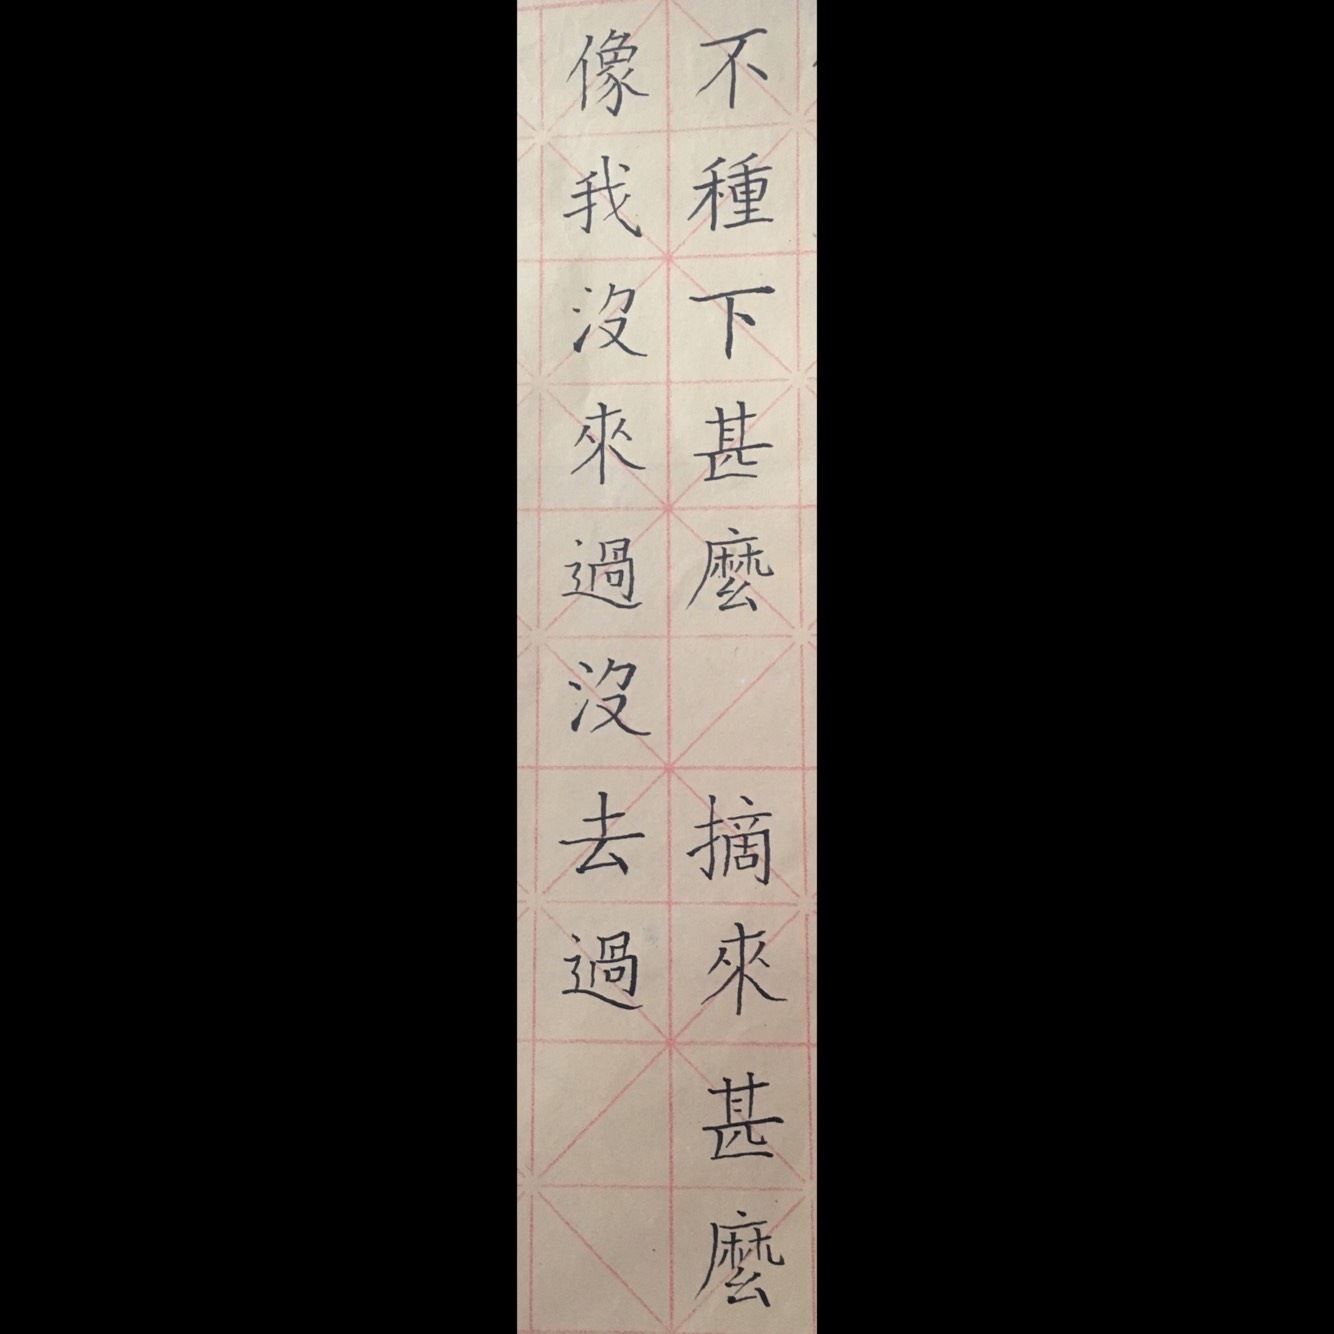 不種下甚麼 摘來甚麼
像我沒來過沒去過